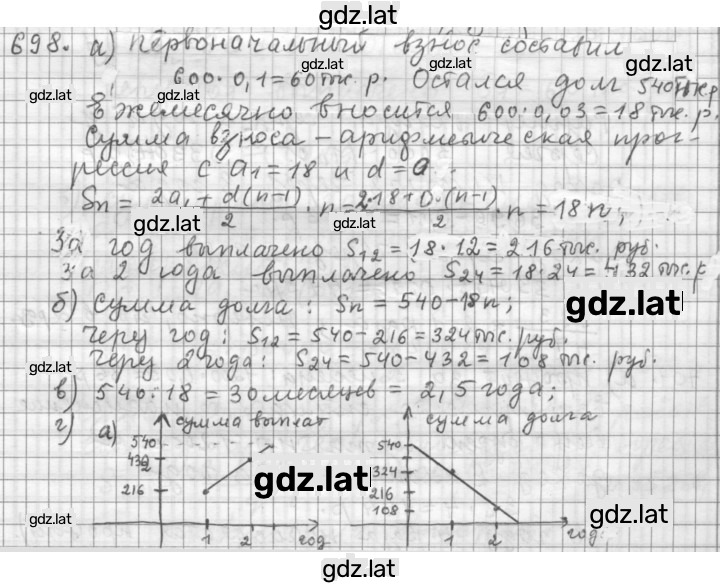 gdz.lat
698. а) Первоначальный взнос составил
600·0,1=60 тыс. р. Остался долг 540 тыс. р
gdz.lat gdz.lat gdz.lat
Ежемесячно вносится 600·0,03=18 тыс. р.
Сумма взноса – арифметическая прог-
рессия с a1=18 и d=0.
Sn = (2a1+d(n-1))/2 · n = (2·18+0·(n-1))/2 · n = 18n;
gdz.lat gdz.lat
За год выплачено S12=18·12=216 тыс. руб.
за 2 года выплачено S24=18·24=432 тыс. р
б) Сумма долга: Sn=540-18n;
gdz.lat
Через год: S12=540-216=324 тыс. руб.
gdz.lat
Через 2 года: S24=540-432=108 тыс. руб.
gdz.lat
в) 540:18=30 месяцев = 2,5 года;
г) а) сумма выплат сумма долга
540 540
432 324
216 216
108
gdz.lat
gdz.lat gdz.lat
1 2 год 1 2 год
gdz.lat